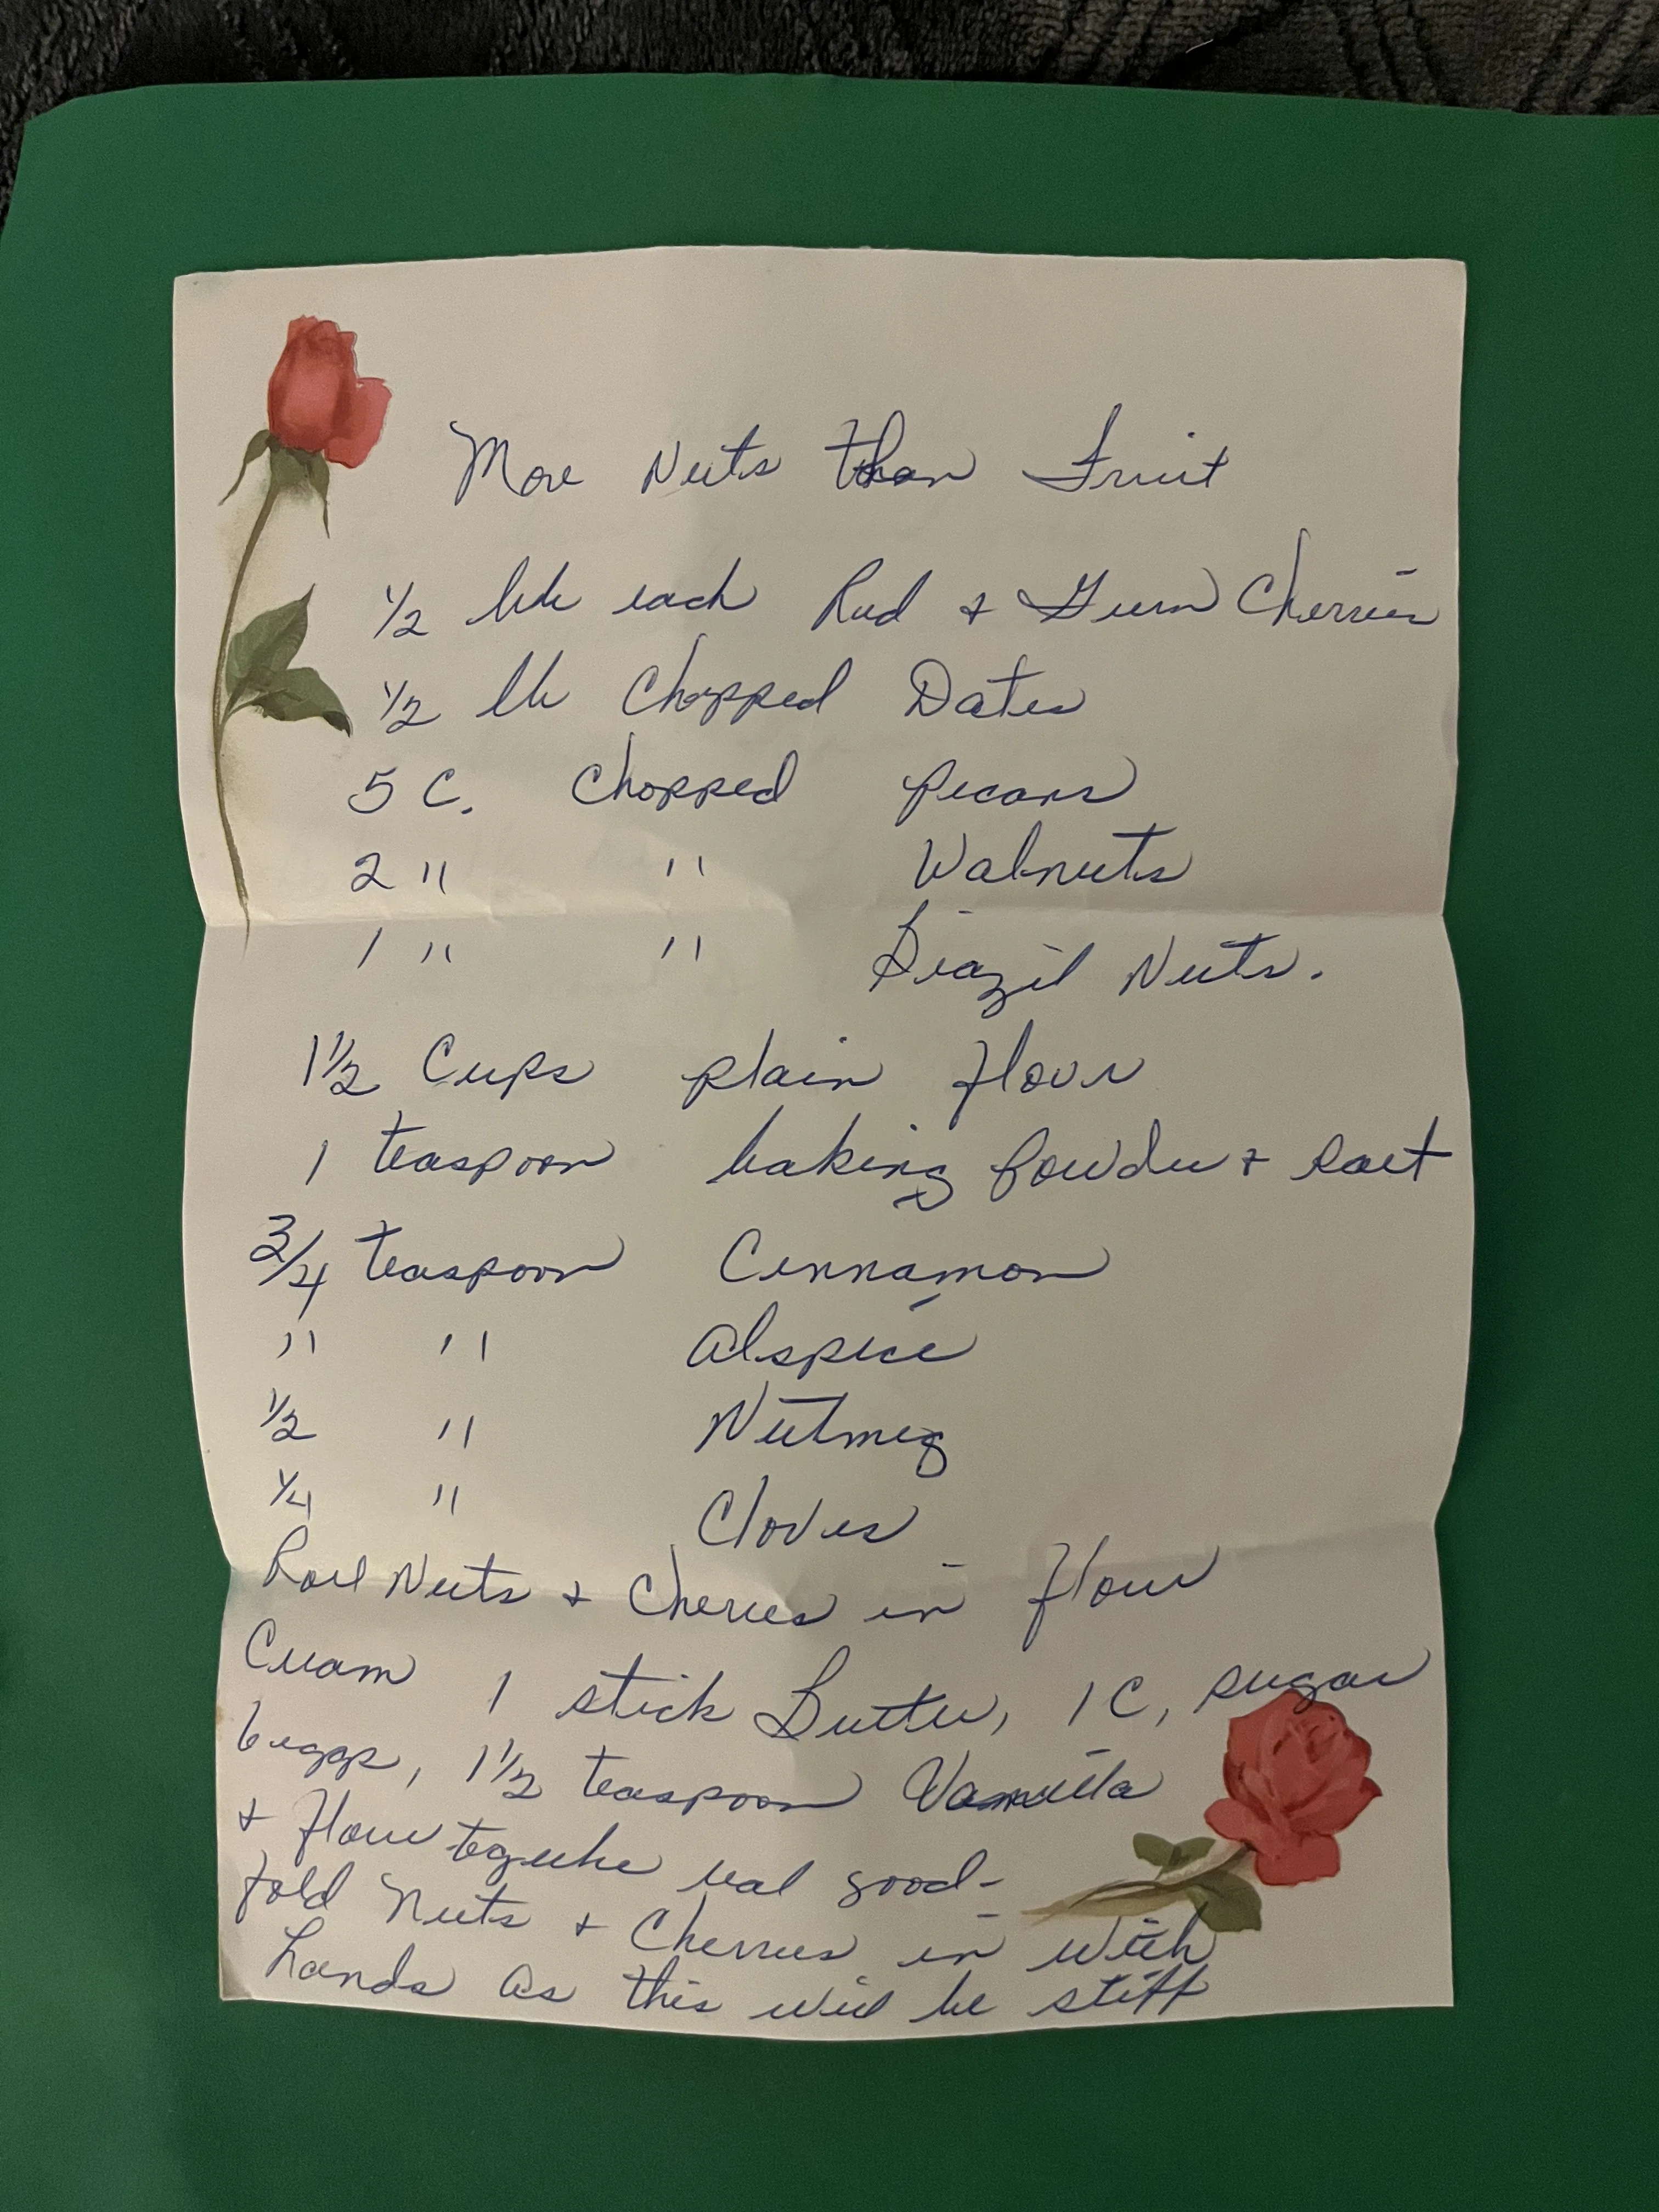 More Nuts than Fruit
1/2 lb each Red + Green Cherries
1/2 lb Chopped Dates
5 C. Chopped Pecans
2 " " Walnuts
1 " " Brazil Nuts.
1 1/2 Cups plain flour
1 teaspoon baking powder + salt
3/4 teaspoon Cinnamon
" " Alspice
1/2 " Nutmeg
1/4 " Cloves
Roll Nuts + Cherries in flour
Cream 1 stick Butter, 1 C, sugar
6 eggs, 1 1/2 teaspoon Vanilla
+ flour together real good-
fold Nuts + Cherries in with
hands as this will be stiff